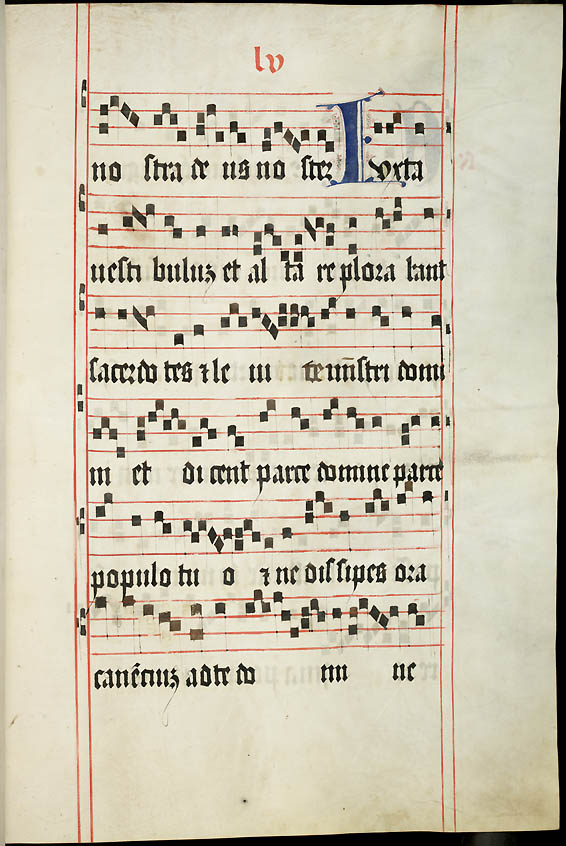 lv
no stra de us no ster Iuxta
uesti buluz et al ta re plora bant
sacerdo tes ⁊ le ui te mīstri domi
ni et di cent parce domine parce
populo tu o ⁊ ne dissipes ora
canētiuz ad te do mi ne